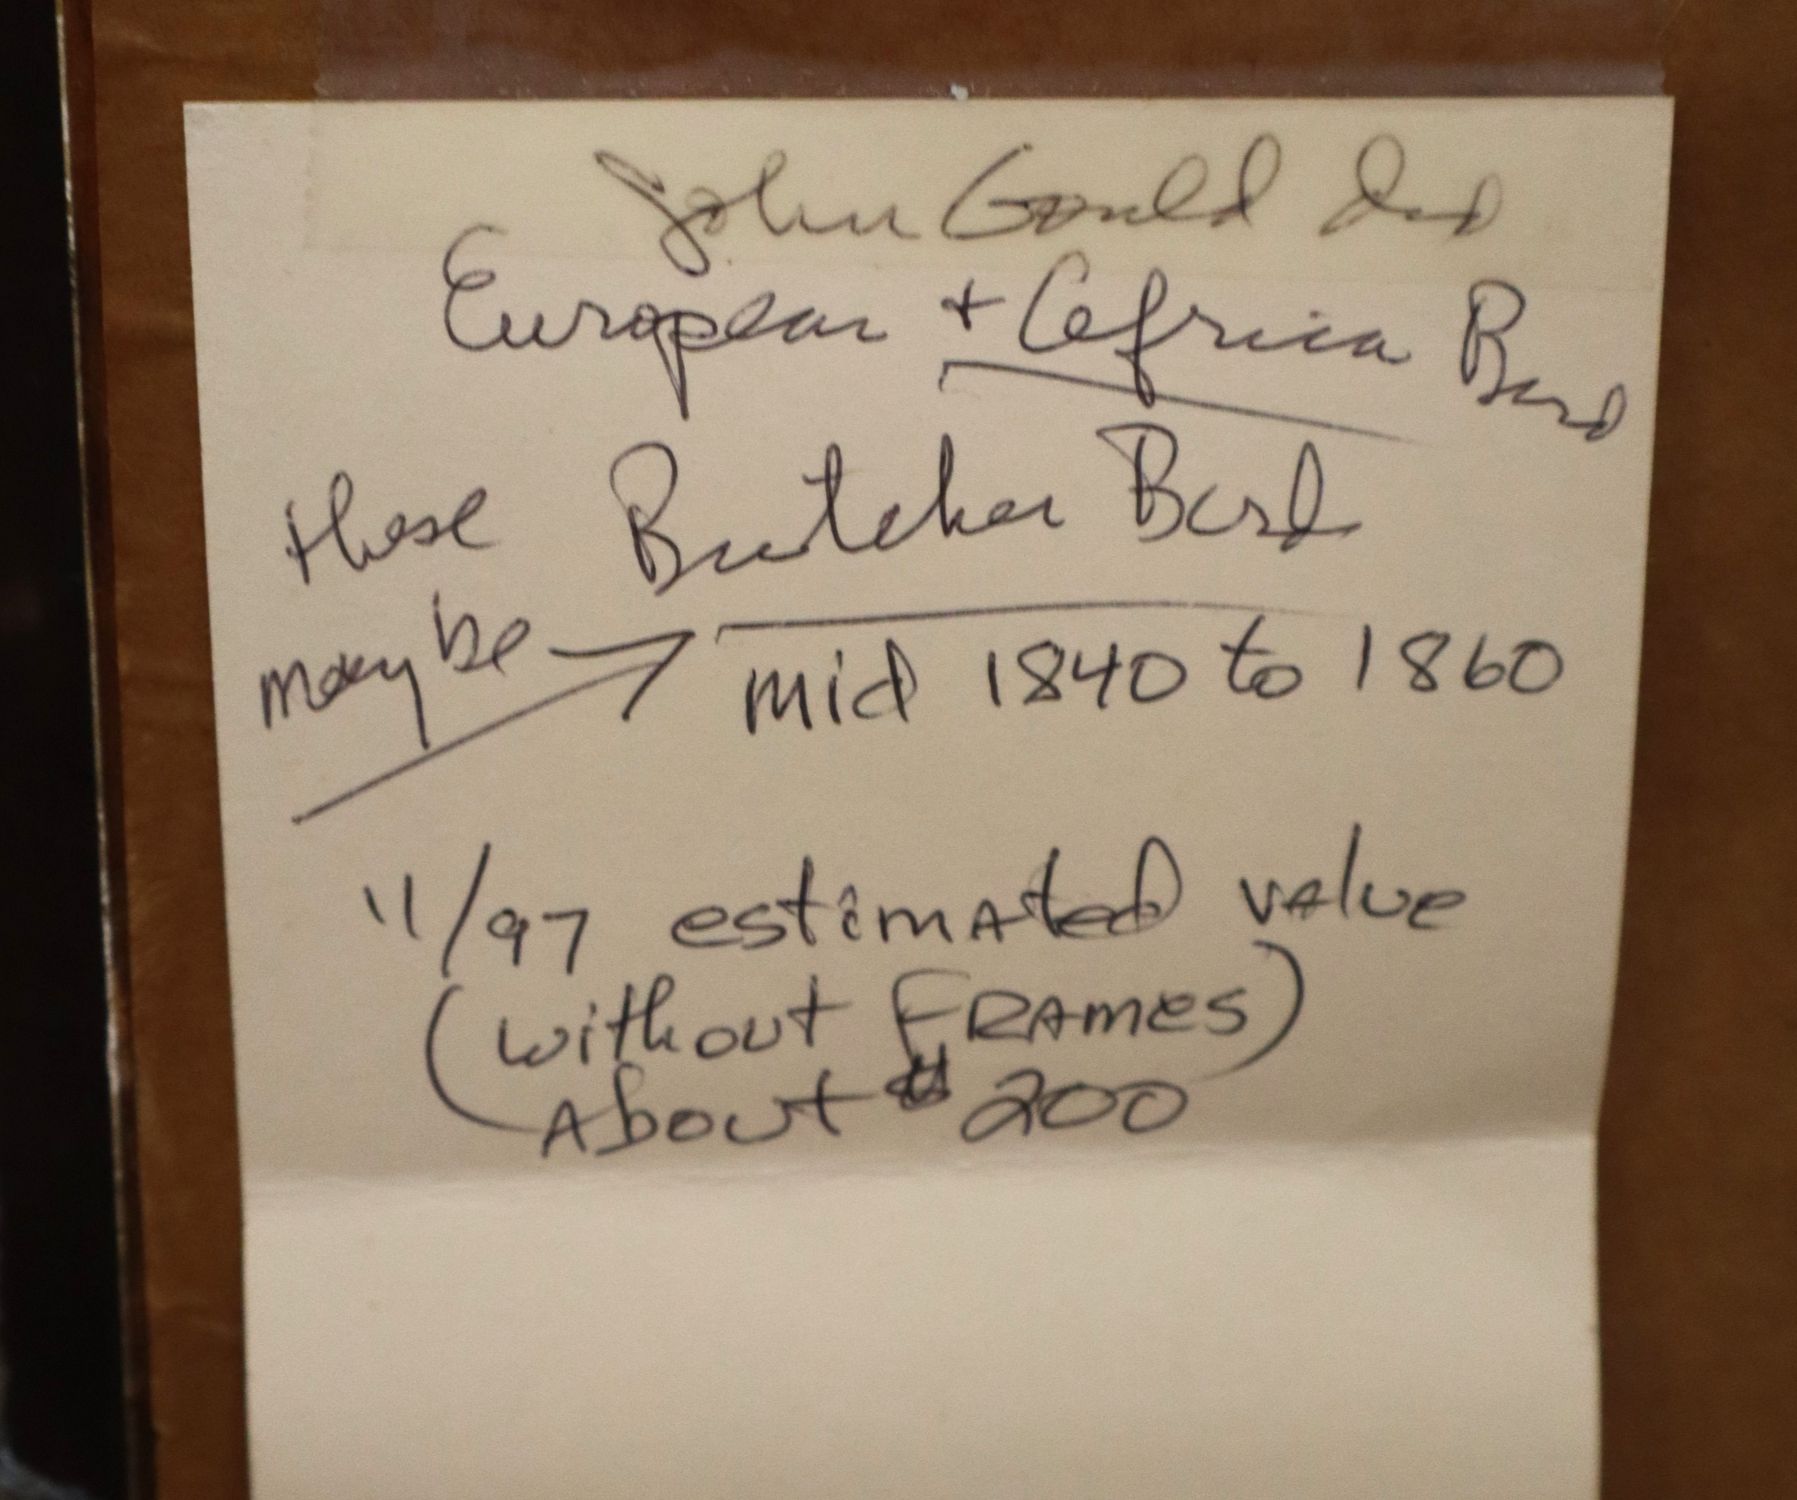 John Gould did
European + Africa Bird
these Butcher Bird
may be → mid 1840 to 1860
11/97 estimated value
(without FRAMES)
About $200